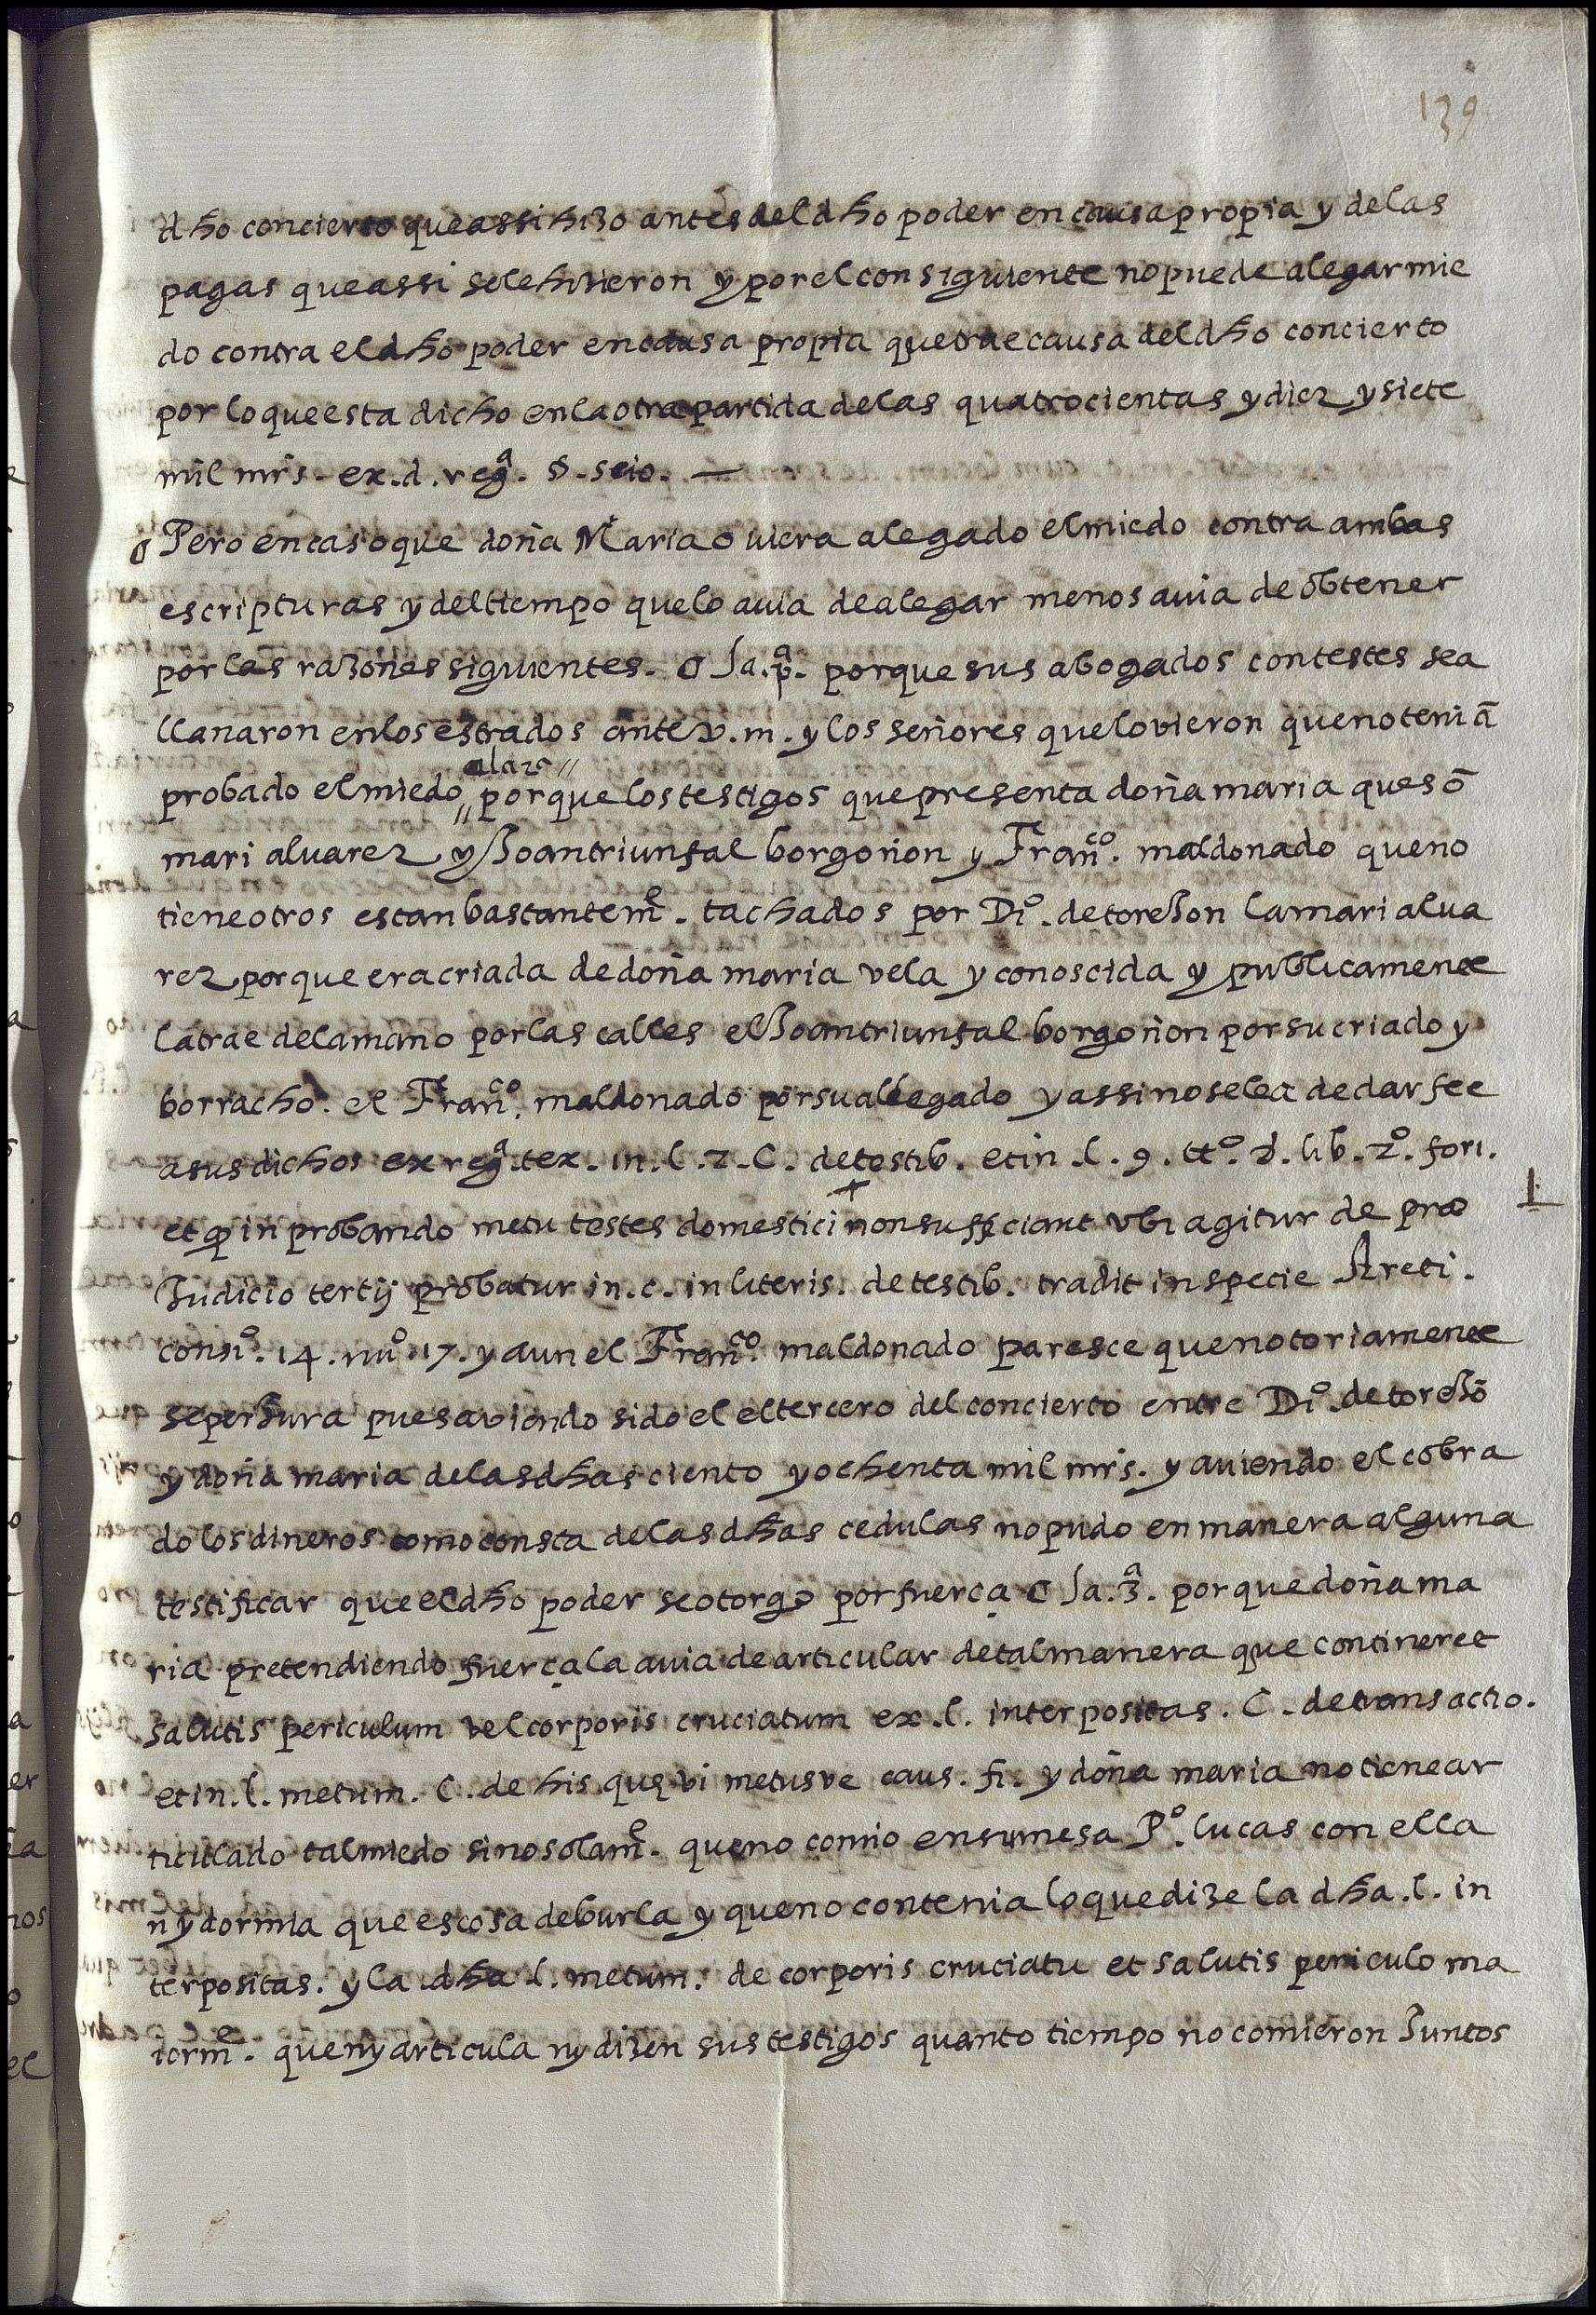 139
dho concierto que assi hizo antes del dho poder en causa propia y de las
pagas que assi se le hizieron y por el consiguiente no puede alegar mie
do contra el dho poder en causa propia que trae causa del dho concierto
por lo que esta dicho en la otra partida de las quatrocientas y diez y siete
mil mrs. ex. d. regª. §. seio. —
Pero en caso que doña Maria oviera alegado el miedo contra ambas
escripturas y del tiempo que lo avia de alegar menos avia de obtener
por las razones siguientes. la. pª. porque sus abogados contestes se a
llanaron en los estrados ante v. m. y los señores que lo vieron que no teniã
probado el miedo porque los testigos que presenta doña maria que sõ
mari alvarez y Joan triunfal borgoñon y Franco. maldonado que no
tiene otros estan bastanteme. tachados por Dio. de torejon la mari alva
rez porque era criada de doña maria vela y conoscida y publicamente
la trae de la mano por las calles el Joan triunfal borgoñon por su criado y
borracho. el Franco. maldonado por su allegado y assi no se le a de dar fee
a sus dichos ex regª. tex. in. l. 2. C. de testib. et in. l. 9. tto. 8. lib. 2o. fori.
et q̃ in probando metu testes domestici non sufficiant vbi agitur de præ
Judicio tertij probatur in. c. in literis. de testib. tradit in specie Areti.
consio. 14. nuo. 17. y aun el Franco. maldonado paresce que notoriamente
se perJura pues aviendo sido el el tercero del concierto entre Dio. de torejõ
y doña maria de las dhas ciento y ochenta mil mrs. y aviendo el cobra
do los dineros como consta de las dhas cedulas no pudo en manera alguna
testificar que el dho poder se otorgo por fuerça la. 3ª. porque doña ma
ria pretendiendo fuerça la avia de articular de tal manera que contineret
salutis periculum vel corporis cruciatum ex. l. interpositas. C. de transactio.
et in. l. metum. C. de his quę vi metusve caus. fi. y doña maria no tiene ar
ticulado tal miedo sino solame. que no comio en su mesa Po. lucas con ella
ny dormia que es cosa de burla y que no contenia lo que dize la dha. l. in
terpositas. y la dha l. metum. de corporis cruciatu et salutis periculo ma
iorme. que ny articula ny dizen sus testigos quanto tiempo no comieron Juntos